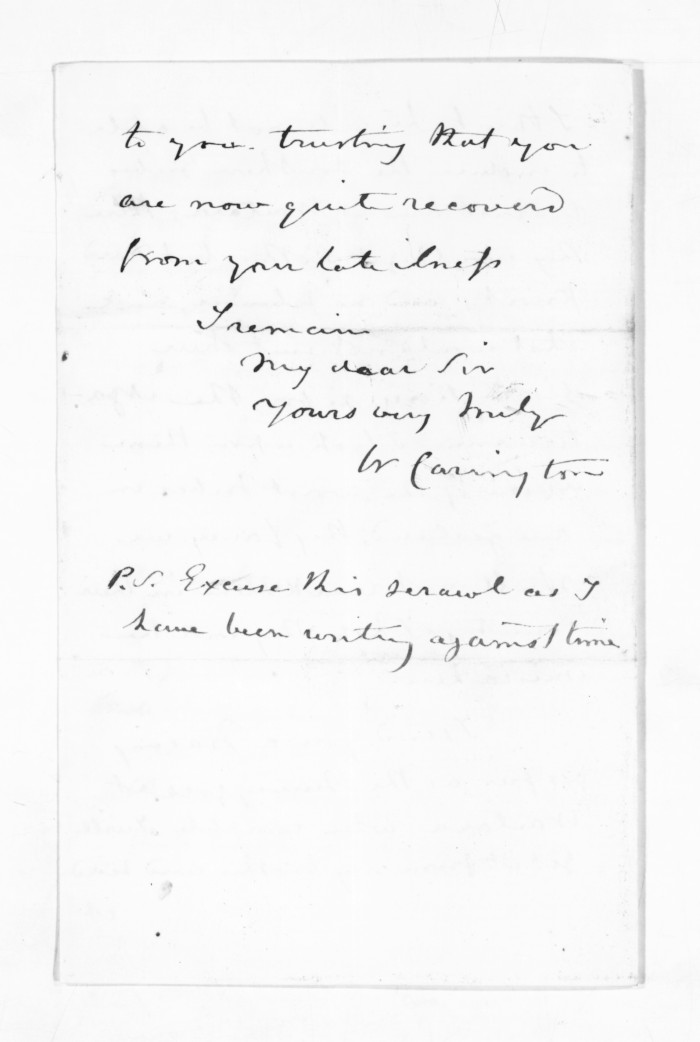 to you. trusting that you
are now quite recovered
from your late ilness
I remain
My dear Sir
Yours very truly
W Carington
P.S. Excuse this scrawl as I
have been writing against time.